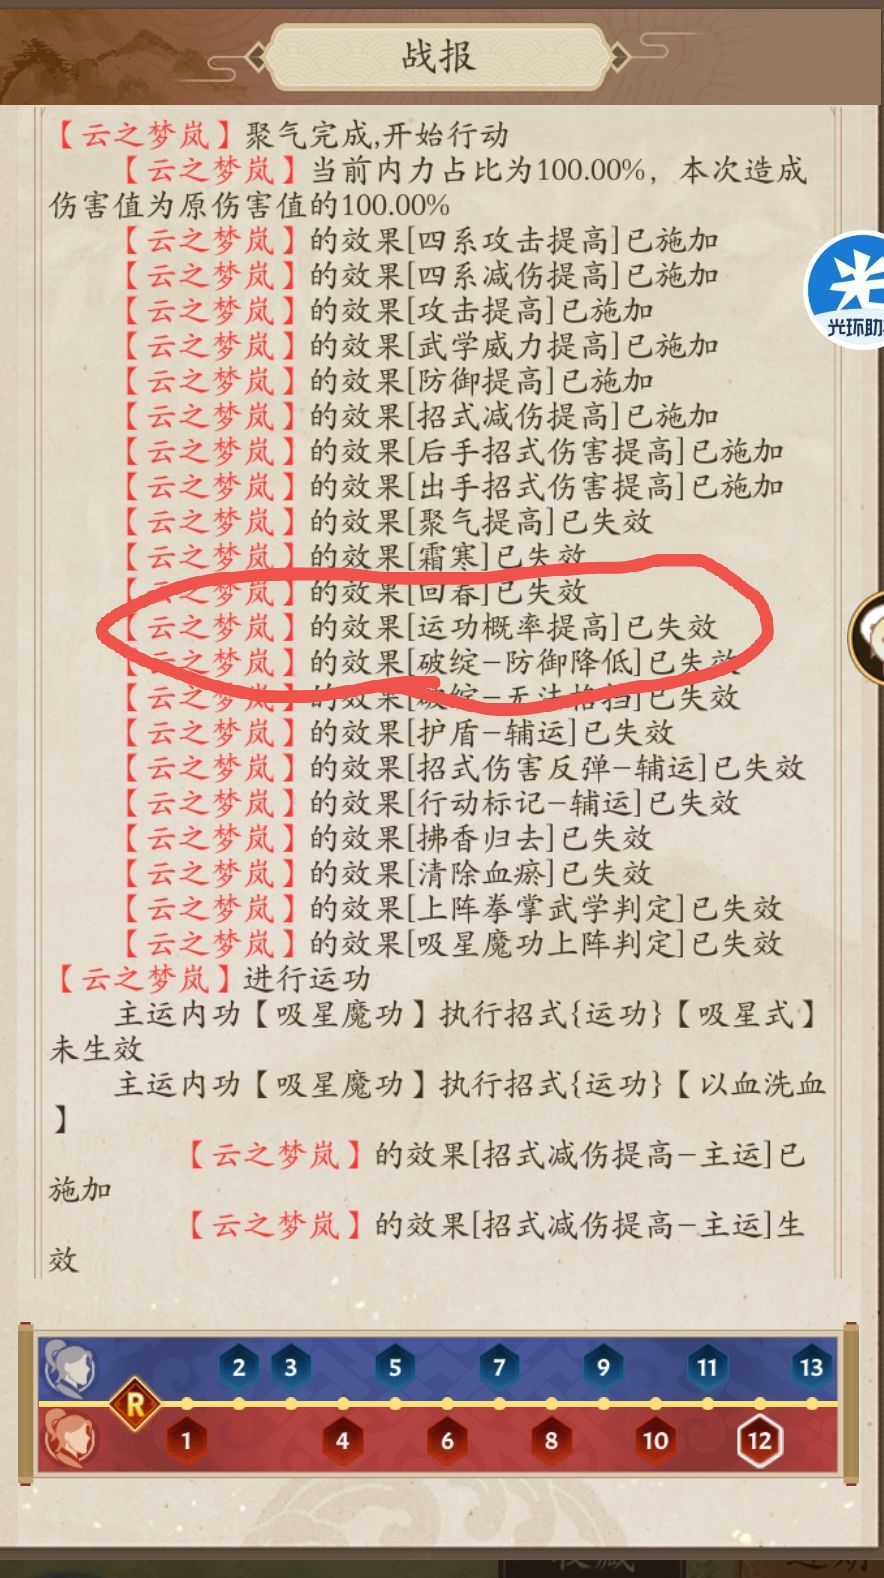 战报
【云之梦岚】聚气完成,开始行动
【云之梦岚】当前内力占比为100.00%，本次造成
伤害值为原伤害值的100.00%
【云之梦岚】的效果[四系攻击提高]已施加
【云之梦岚】的效果[四系减伤提高]已施加
【云之梦岚】的效果[攻击提高]已施加
【云之梦岚】的效果[武学威力提高]已施加
【云之梦岚】的效果[防御提高]已施加
【云之梦岚】的效果[招式减伤提高]已施加
【云之梦岚】的效果[后手招式伤害提高]已施加
【云之梦岚】的效果[出手招式伤害提高]已施加
【云之梦岚】的效果[聚气提高]已失效
【云之梦岚】的效果[霜寒]已失效
【云之梦岚】的效果[回春]已失效
【云之梦岚】的效果[运功概率提高]已失效
【云之梦岚】的效果[破绽-防御降低]已失效
【云之梦岚】的效果[破绽-无法格挡]已失效
【云之梦岚】的效果[护盾-辅运]已失效
【云之梦岚】的效果[招式伤害反弹-辅运]已失效
【云之梦岚】的效果[行动标记-辅运]已失效
【云之梦岚】的效果[拂香归去]已失效
【云之梦岚】的效果[清除血瘀]已失效
【云之梦岚】的效果[上阵拳掌武学判定]已失效
【云之梦岚】的效果[吸星魔功上阵判定]已失效
【云之梦岚】进行运功
主运内功【吸星魔功】执行招式{运功}【吸星式】
未生效
主运内功【吸星魔功】执行招式{运功}【以血洗血
】
【云之梦岚】的效果[招式减伤提高-主运]已
施加
【云之梦岚】的效果[招式减伤提高-主运]生
效
光环助
2 3 5 7 9 11 13
R
1 4 6 8 10 12